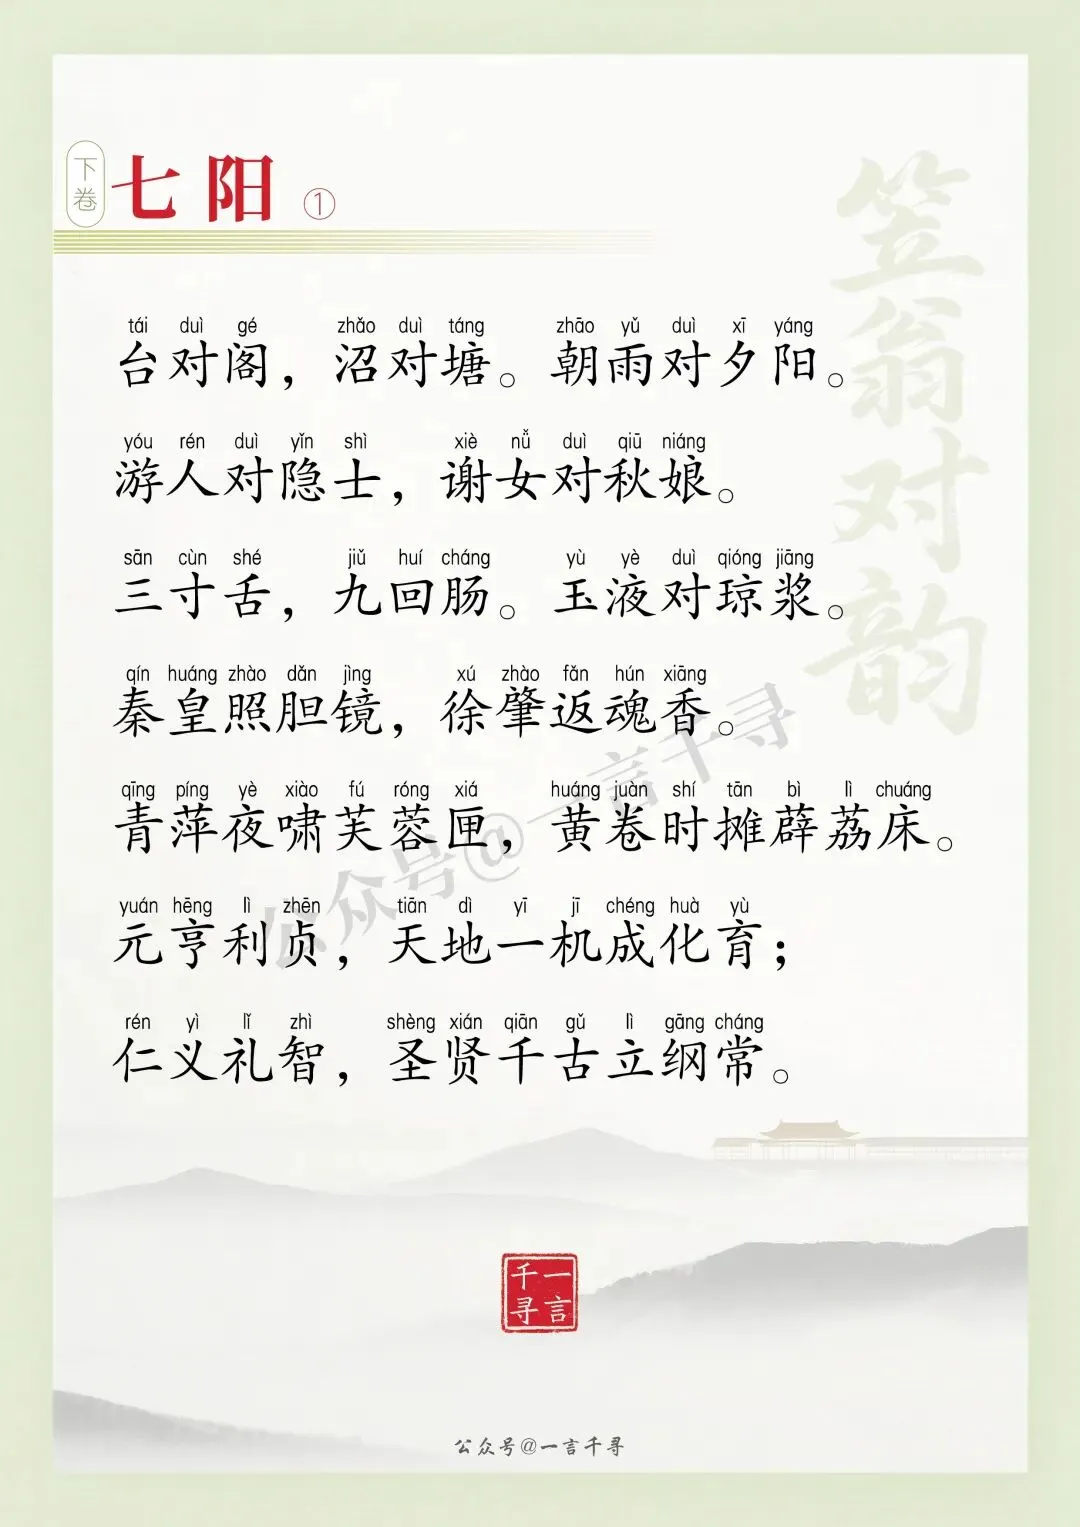 下卷
七阳 ①
笠翁对韵
tái duì gé zhǎo duì táng zhāo yǔ duì xī yáng
台对阁，沼对塘。朝雨对夕阳。
yóu rén duì yǐn shì xiè nǚ duì qiū niáng
游人对隐士，谢女对秋娘。
sān cùn shé jiǔ huí cháng yù yè duì qióng jiāng
三寸舌，九回肠。玉液对琼浆。
qín huáng zhào dǎn jìng xú zhào fǎn hún xiāng
秦皇照胆镜，徐肇返魂香。
qīng píng yè xiào fú róng xiá huáng juàn shí tān bì lì chuáng
青萍夜啸芙蓉匣，黄卷时摊薜荔床。
yuán hēng lì zhēn tiān dì yī jī chéng huà yù
元亨利贞，天地一机成化育；
rén yì lǐ zhì shèng xián qiān gǔ lì gāng cháng
仁义礼智，圣贤千古立纲常。
公众号@一言千寻
一言千寻
公众号@一言千寻